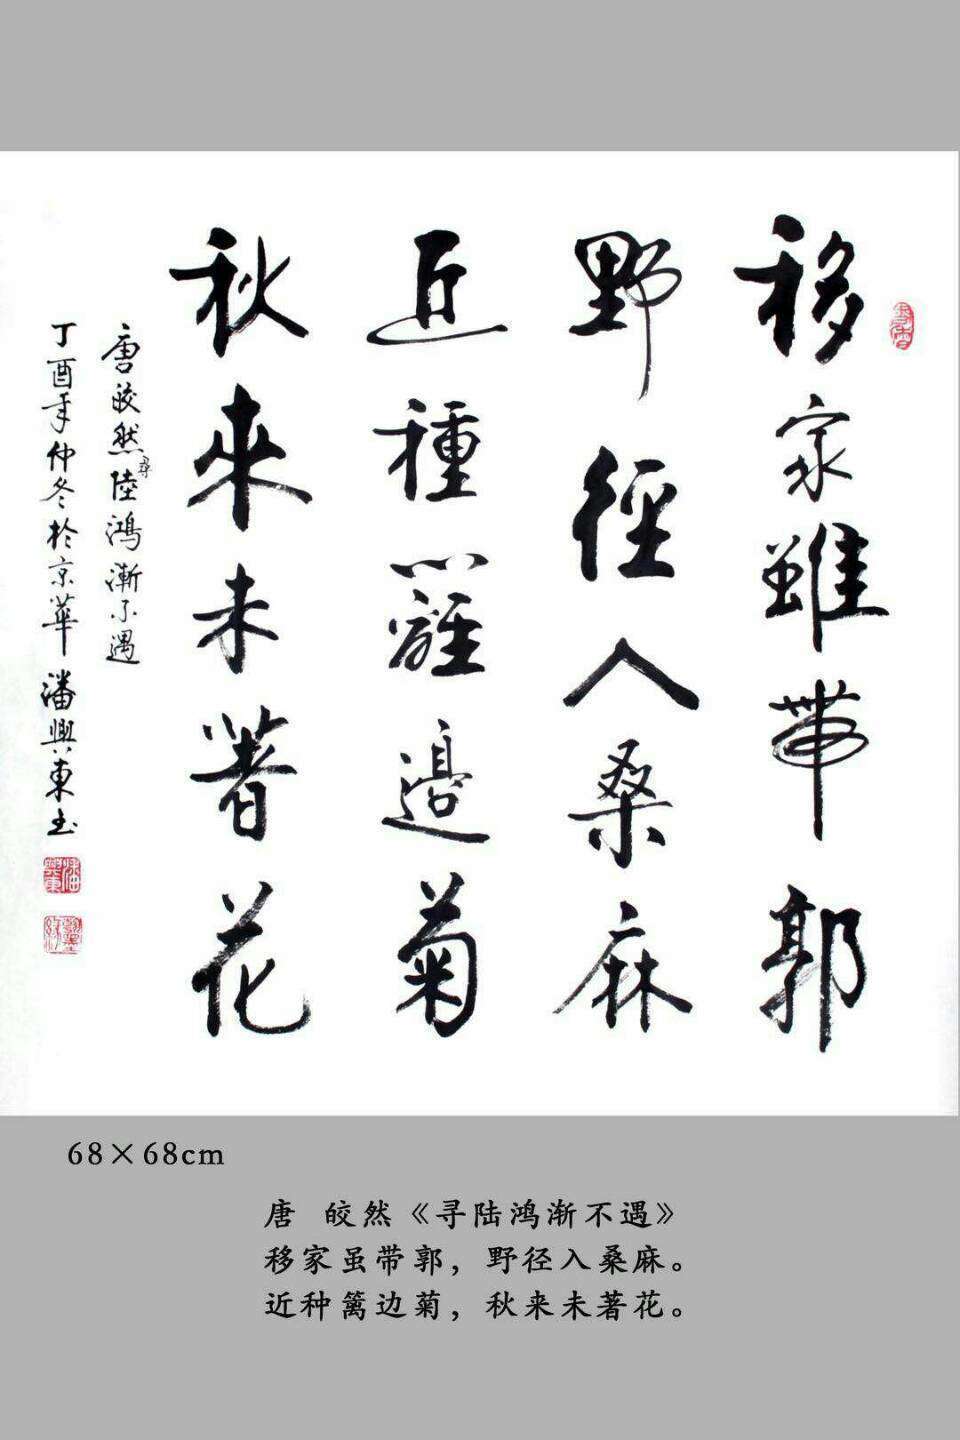 移家雖帶郭
野徑入桑麻
近種籬邊菊
秋來未著花
唐皎然尋陸鴻漸不遇
丁酉年仲冬於京華潘興東书
68×68cm
唐 皎然《寻陆鸿渐不遇》
移家虽带郭，野径入桑麻。
近种篱边菊，秋来未著花。